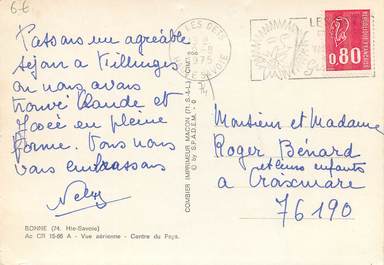 6-6
Passons un agréable
séjour à Fillinges
ou nous avons
trouvé Claude et
Josée en pleine
forme. Tous nous
vous embrassons
Nelly
BONNE (74. Hte-Savoie)
Ac CR 15-86 A - Vue aérienne - Centre du Pays.
COMBIER IMPRIMEUR MACON (71. S.-&-L.) "CIM"
© by S.P.A.D.E.M.
1975
SAVOIE
74
LES
REPUBLIQUE FRANÇAISE
0,80
Monsieur et Madame
Roger Bénard
et leurs enfants
à Croixmare
76190